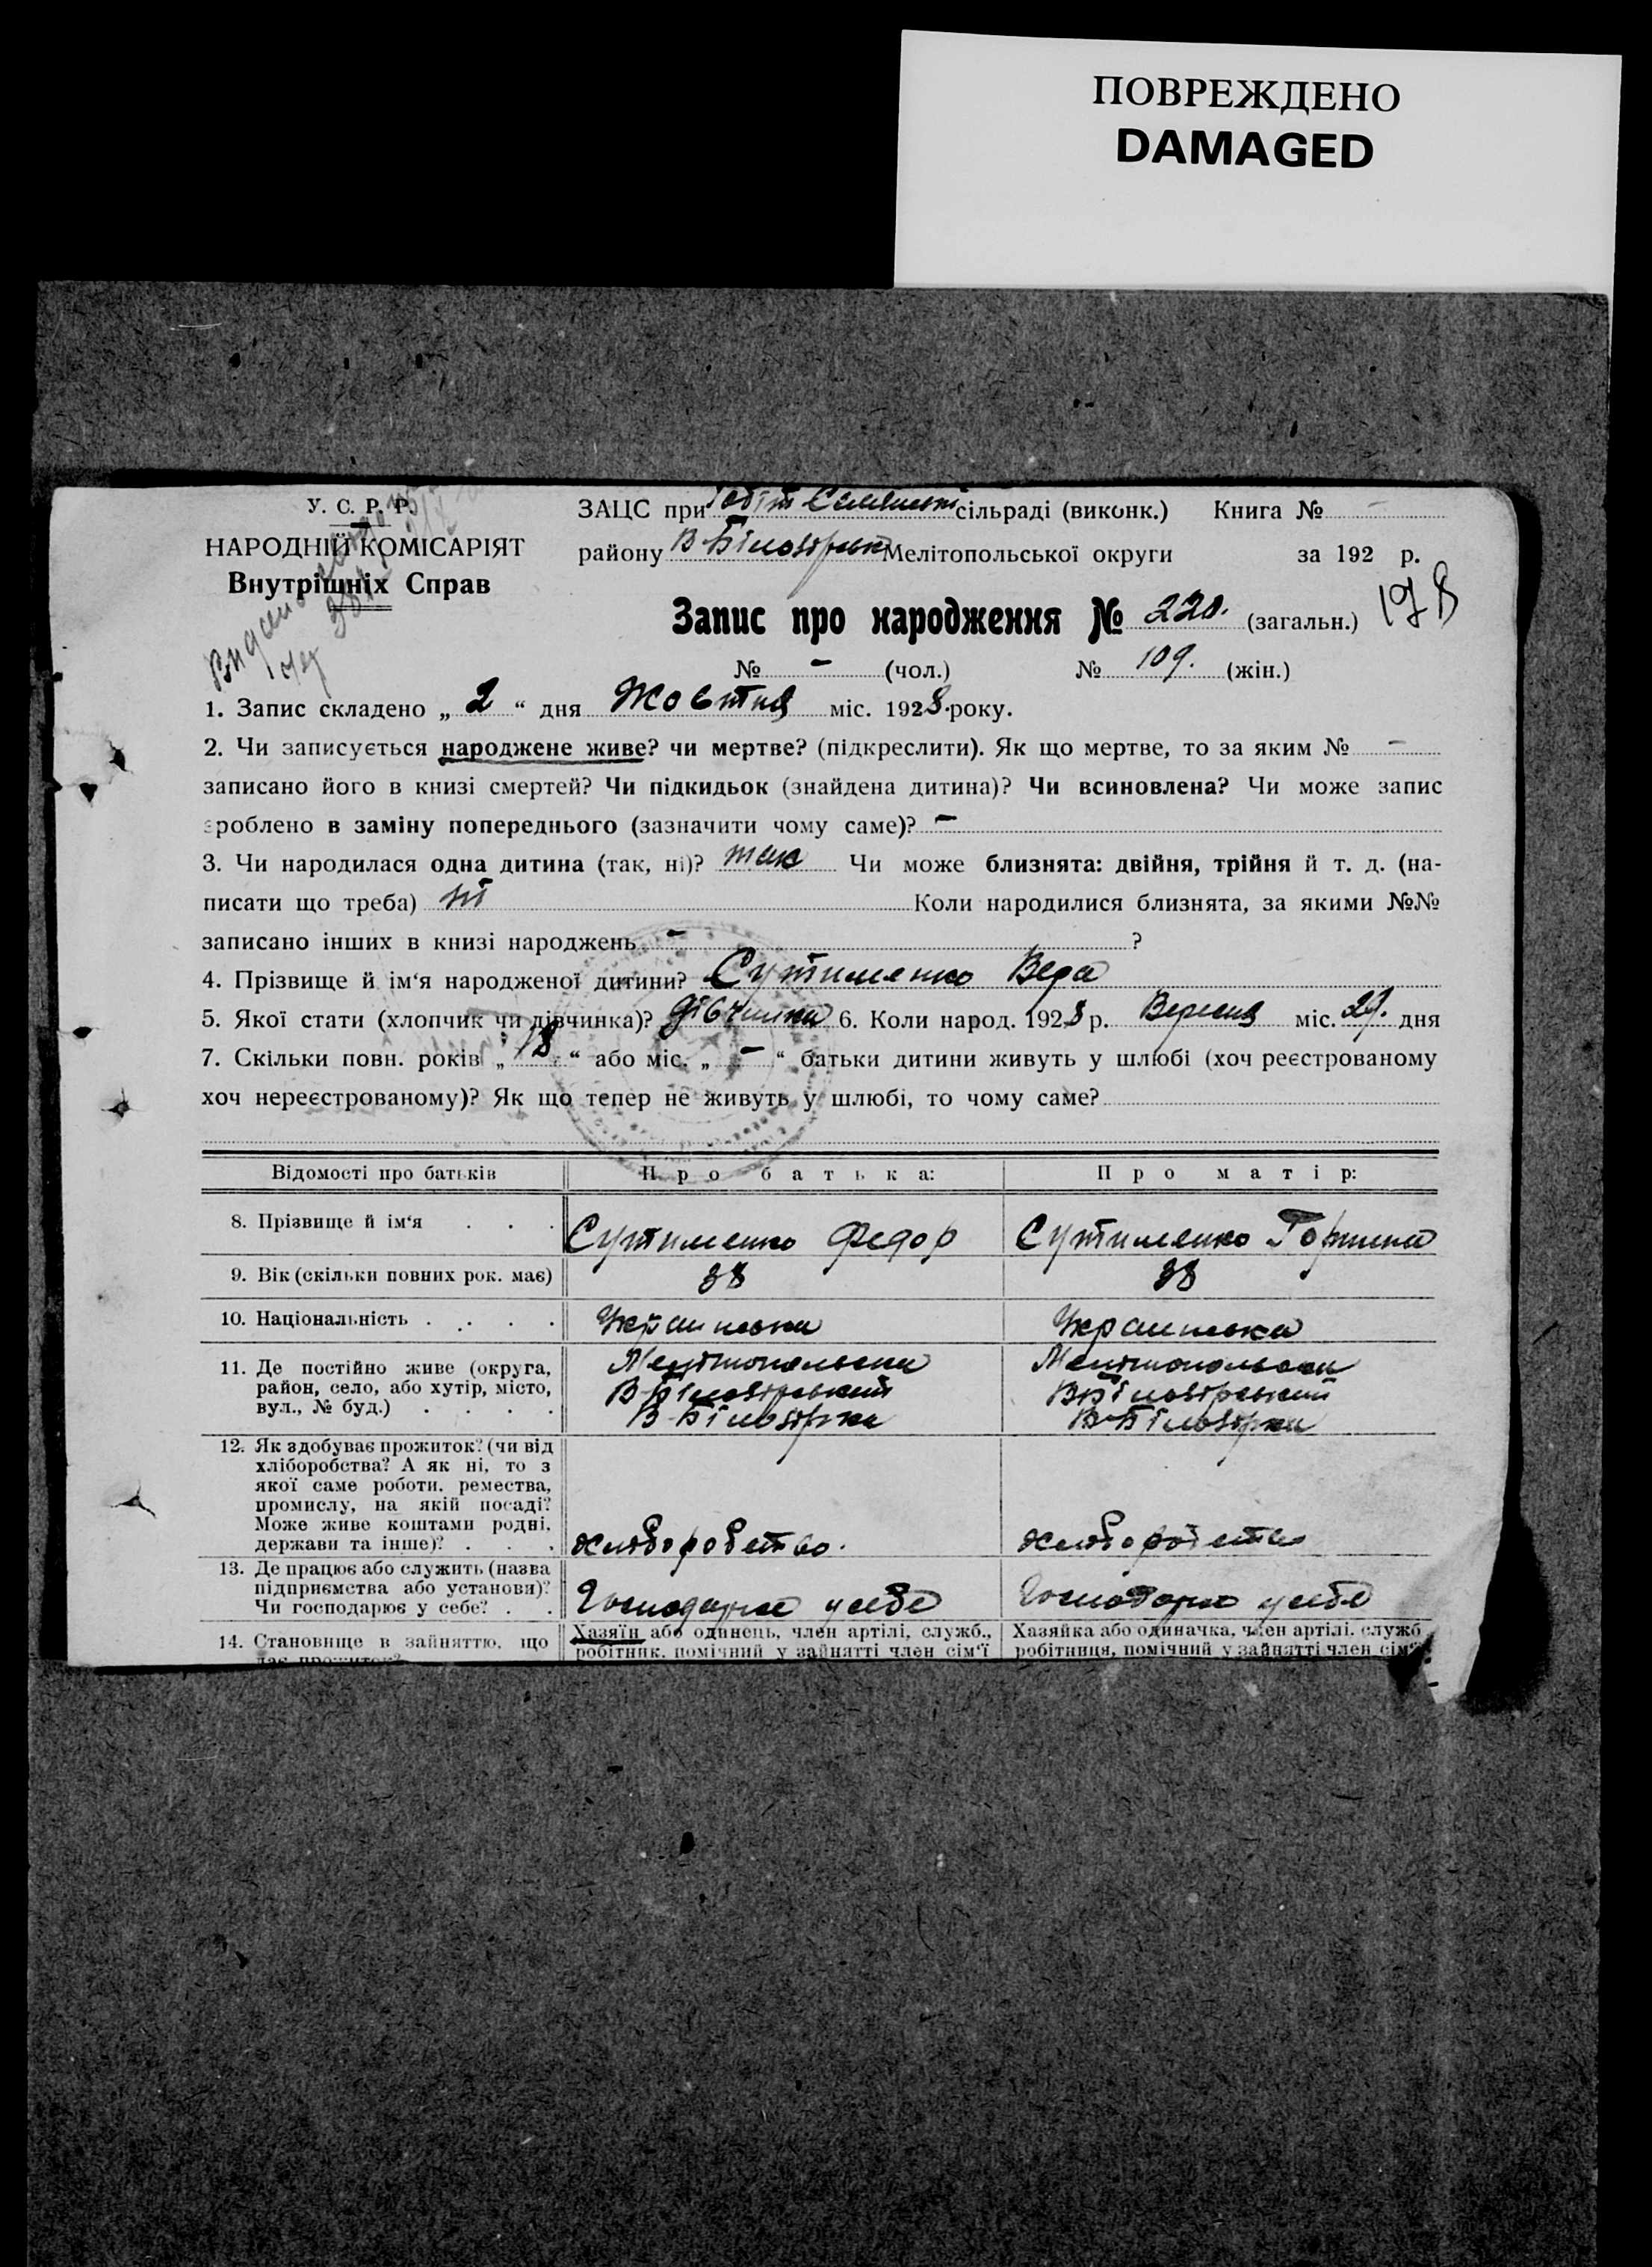 ПОВРЕЖДЕНО
DAMAGED
У. С. Р. Р.
НАРОДНІЙ КОМІСАРІЯТ
Внутрішніх Справ
Видано
ЗАЦС при сільраді (виконк.) Книга № -
району В-Білозірськ Мелітопольської округи за 192 р.
178
Запис про народження № 220. (загальн.)
№ - (чол.) № 109. (жін.)
1. Запис складено „ 2 “ дня Жовтня міс. 1928. року.
2. Чи записується народжене живе? чи мертве? (підкреслити). Як що мертве, то за яким № -
записано його в книзі смертей? Чи підкидьок (знайдена дитина)? Чи всиновлена? Чи може запис
зроблено в заміну попереднього (зазначити чому саме)? -
3. Чи народилася одна дитина (так, ні)? так Чи може близнята: двійня, трійня й т. д. (на-
писати що треба) ні Коли народилися близнята, за якими №№
записано інших в книзі народжень - ?
4. Прізвище й ім‘я народженої дитини? Сутименко Вера
5. Якої стати (хлопчик чи дівчинка)? дівчинка 6. Коли народ. 1928 р. Вересня міс. 29. дня
7. Скільки повн. років „ 18 “ або міс. „ - “ батьки дитини живуть у шлюбі (хоч реєстрованому
хоч нереєстрованому)? Як що тепер не живуть у шлюбі, то чому саме?
Відомості про батьків Про батька: Про матір:
8. Прізвище й ім‘я . . . Сутименко Федор Сутименко Горпина
9. Вік (скільки повних рок. має) 38 38
10. Національність . . . . Украинська Украинська
11. Де постійно живе (округа, Мелітопольська Мелітопольська
район, село, або хутір, місто, В-Білозірський В-Білозірський
вул., № буд.) . . . . В-Білозірка В-Білозірка
12. Як здобуває прожиток? (чи від
хліборобства? А як ні, то з
якої саме роботи, ремества,
промислу, на якій посаді?
Може живе коштами родні,
держави та інше)? . . . хліборобство. хліборобство
13. Де працює або служить (назва
підприємства або установи)?
Чи господарює у себе? . . Господарює у себе Господарює у себе
14. Становище в зайняттю, що Хазяїн або одинець, член артілі, служб., Хазяйка або одиначка, член артілі, служб
дає прожиток? робітник, помічний у зайнятті член сім‘ї робітниця, помічний у зайнятті член сім‘ї